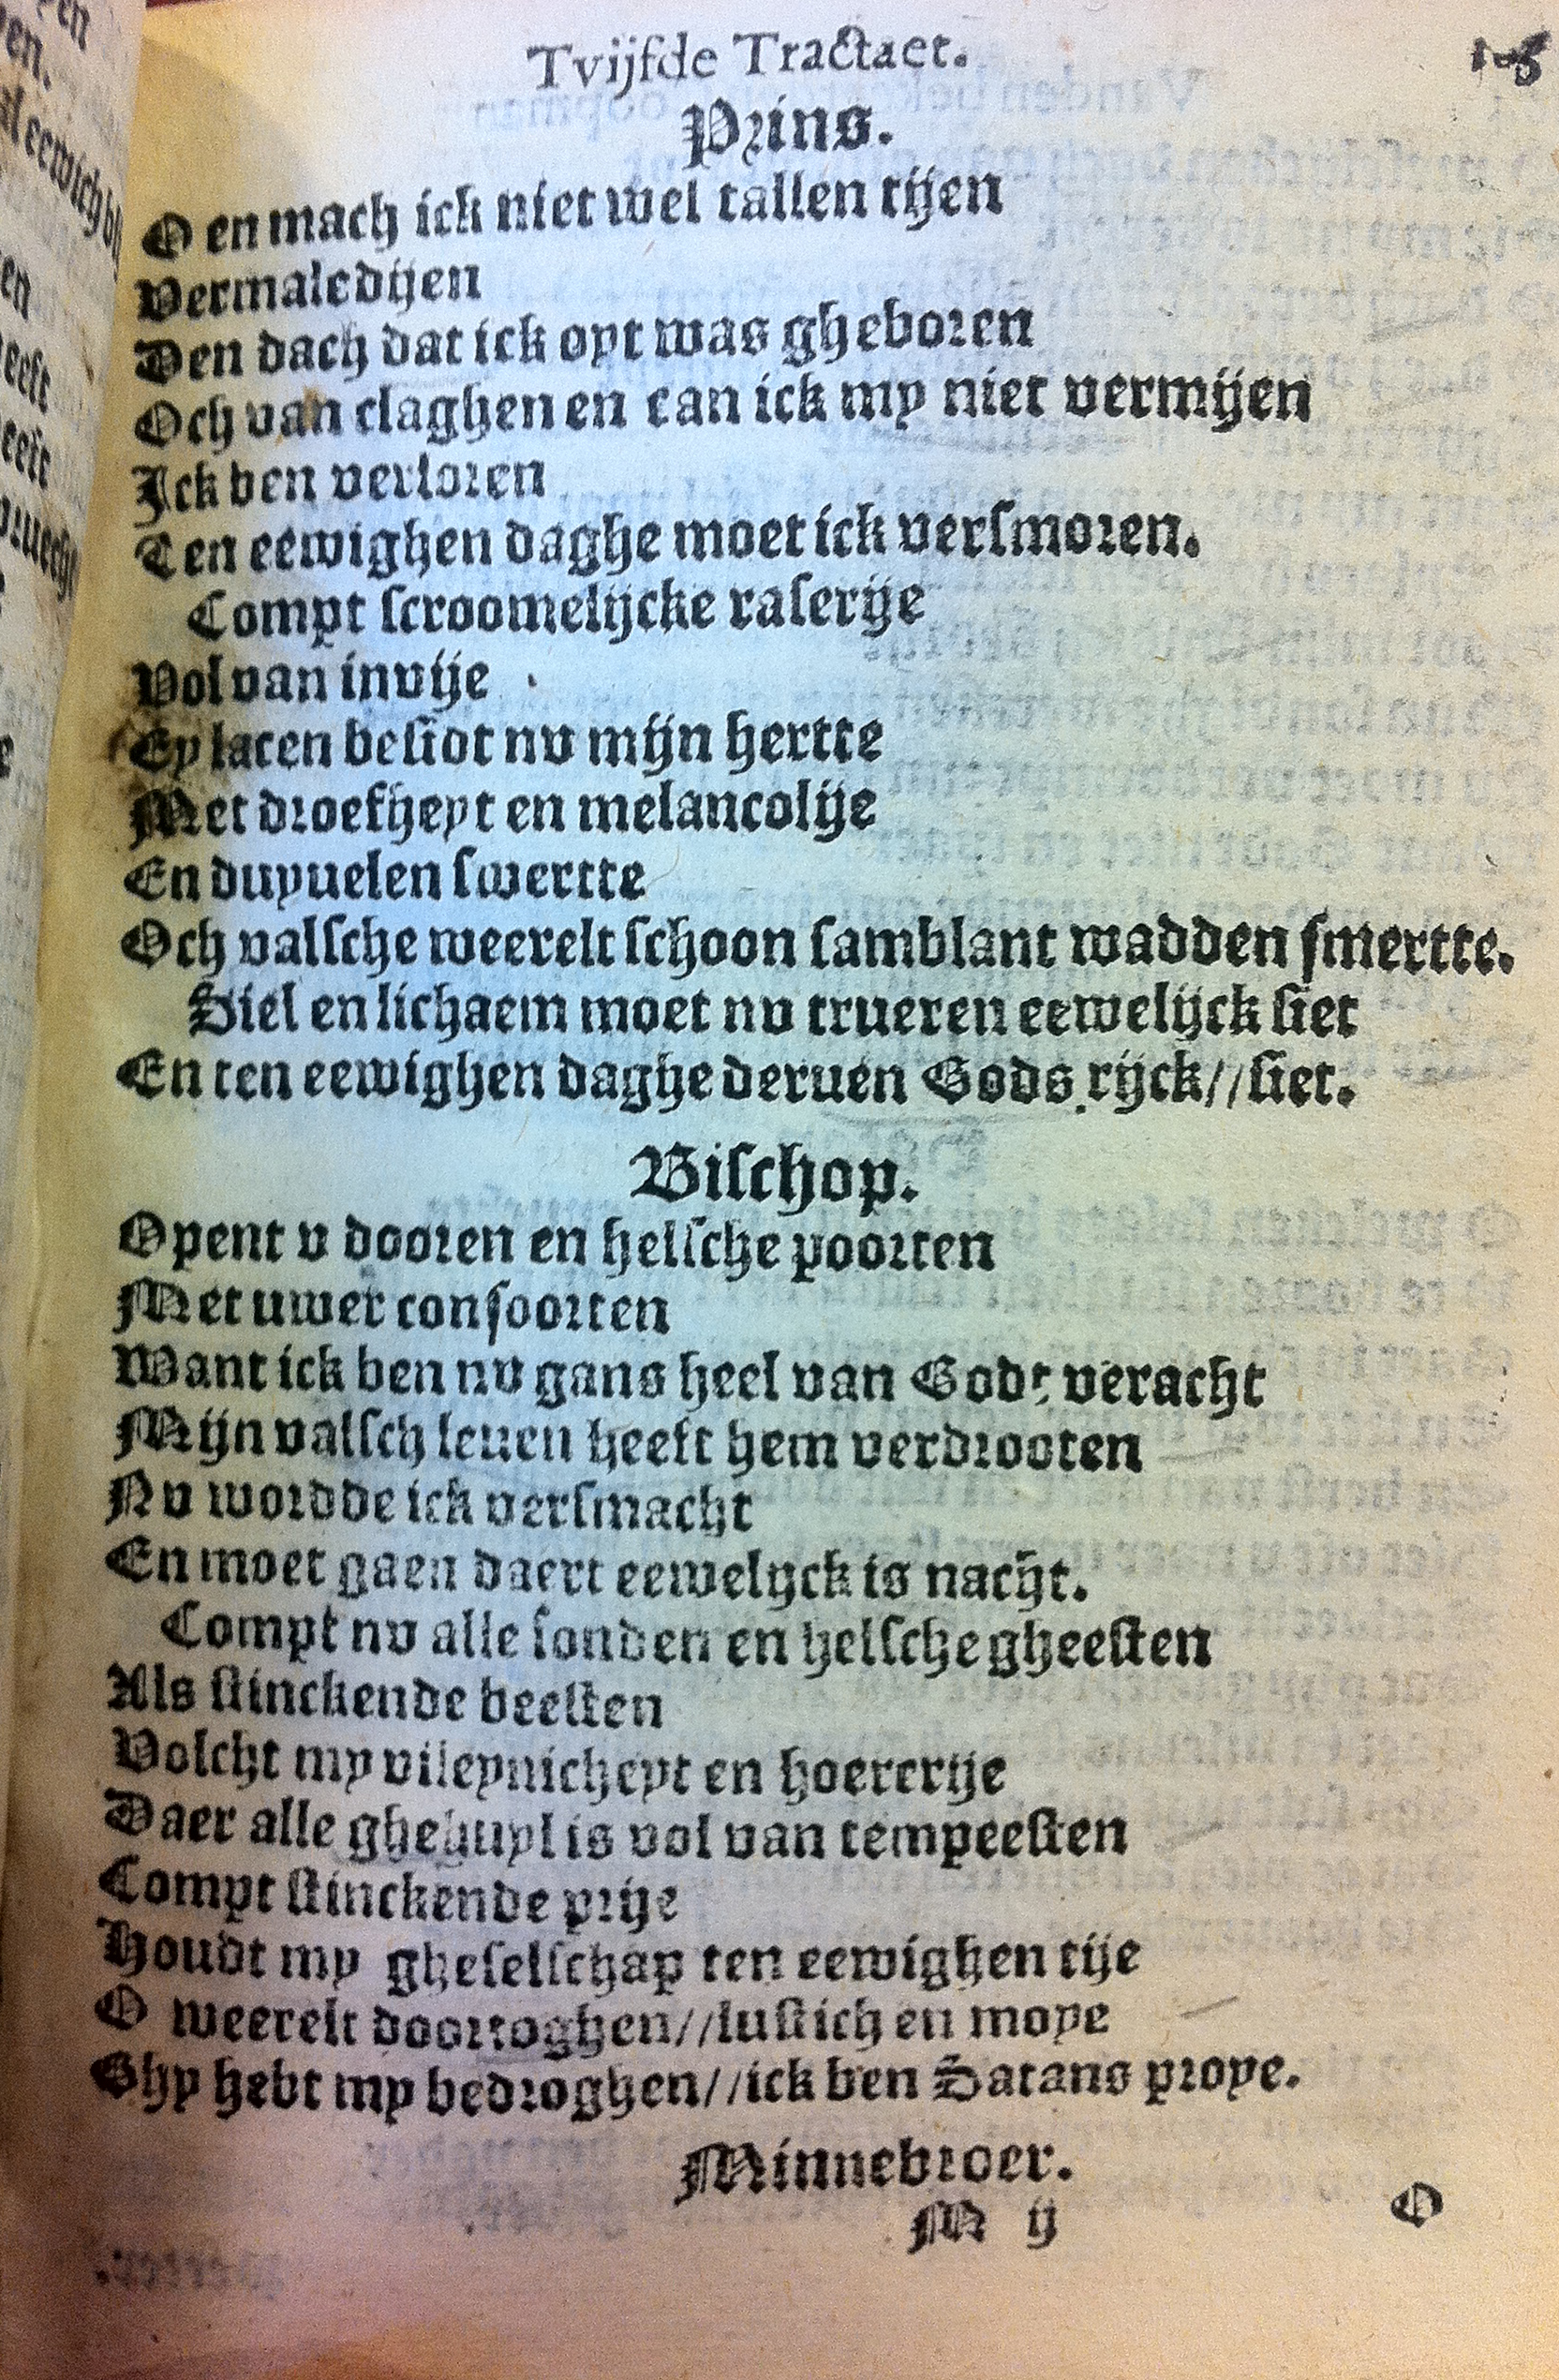 Tvijfde Tractaet.
Prins.
O en mach ick niet wel tallen tijen
Vermaledijen
Den dach dat ick oyt was gheboren
Och van claghen en can ick my niet vermijen
Ick ben verloren
Ten eewighen daghe moet ick versmoren.
Compt scroomelijcke raserije
Vol van invije
Ey lacen besiot nv mijn hertte
Met droefheyt en melancolije
En duyuelen swertte
Och valsche weerelt schoon samblant wadden smertte.
Siel en lichaem moet nv trueren eewelijck siet
En ten eewighen daghe deruen Gods rijck//siet.
Bischop.
Opent v dooren en helsche poorten
Met uwer consoorten
Want ick ben nv gans heel van Godt veracht
Mijn valsch leuen heeft hem verdrooten
Nv wordde ick versmacht
En moet gaen daert eewelijck is nacht.
Compt nv alle sonden en helsche gheesten
Als stinckende beesten
Volcht my vileynicheyt en hoererije
Daer alle ghehuyl is vol van tempeesten
Compt stinckende prije
Houdt my gheselschap ten eewighen tije
O weerelt doortoghen//lustich en moye
Ghy hebt my bedroghen//ick ben Satans proye.
Minnebroer.
M ij
O